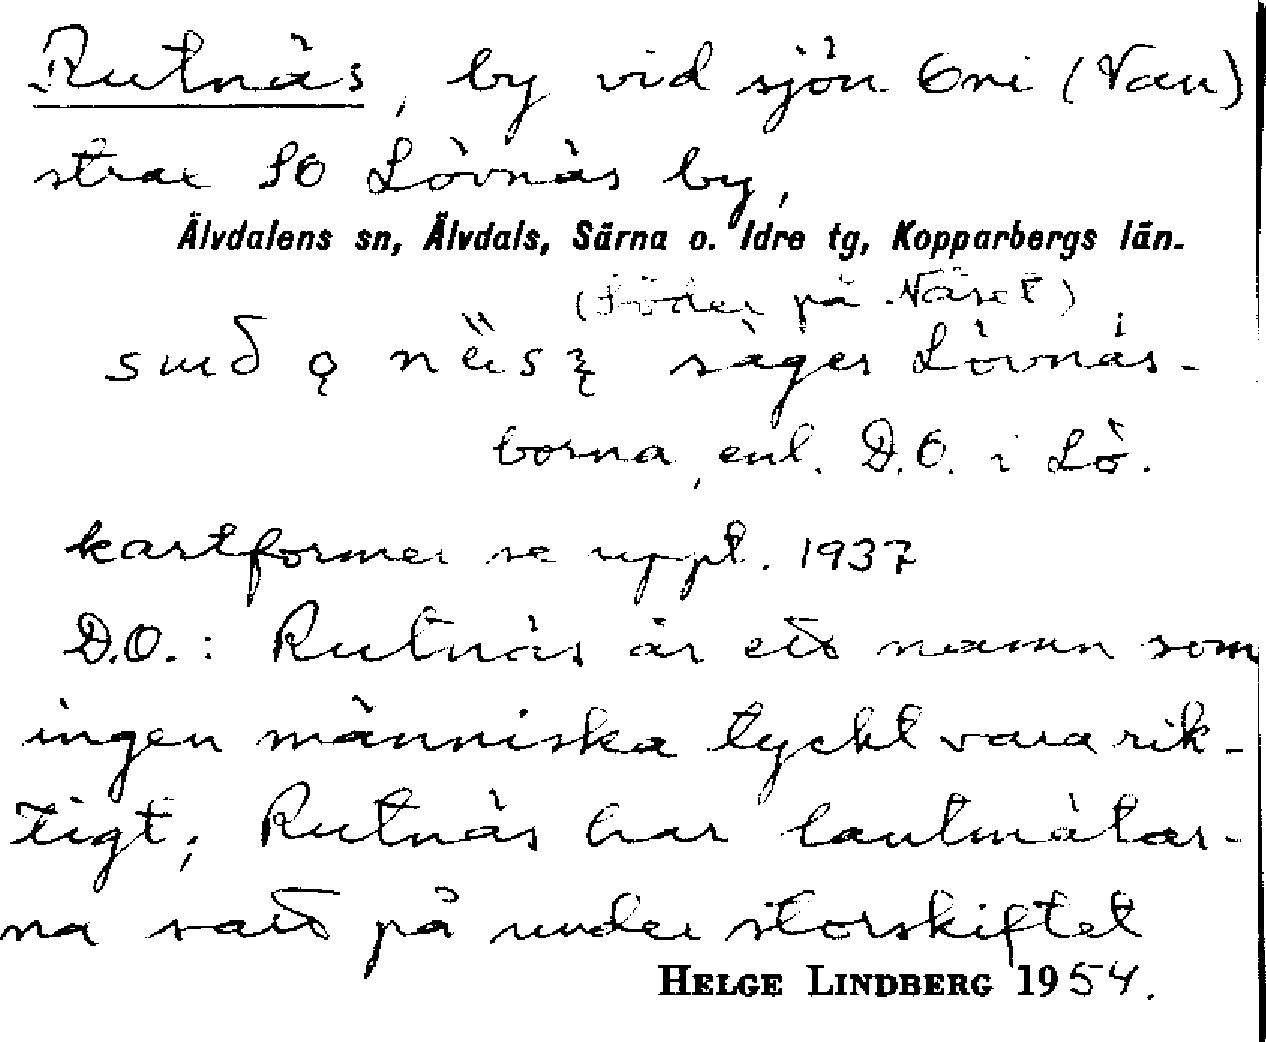 Rutnäs, by vid sjön Öni (Van)
strax SO Lövnäs by,
Älvdalens sn, Älvdals, Särna o. Idre tg, Kopparbergs län.
(Söder på Näset)
säges Lövnäs-
borna, enl. D.O. i Lö.
kartformer se uppt. 1937
D.O.: Rutnäs är ett namn som
ingen människa tyckt vara rik-
tigt; Rutnäs har lantmätar-
na satt på under storskiftet
HELGE LINDBERG 1954.